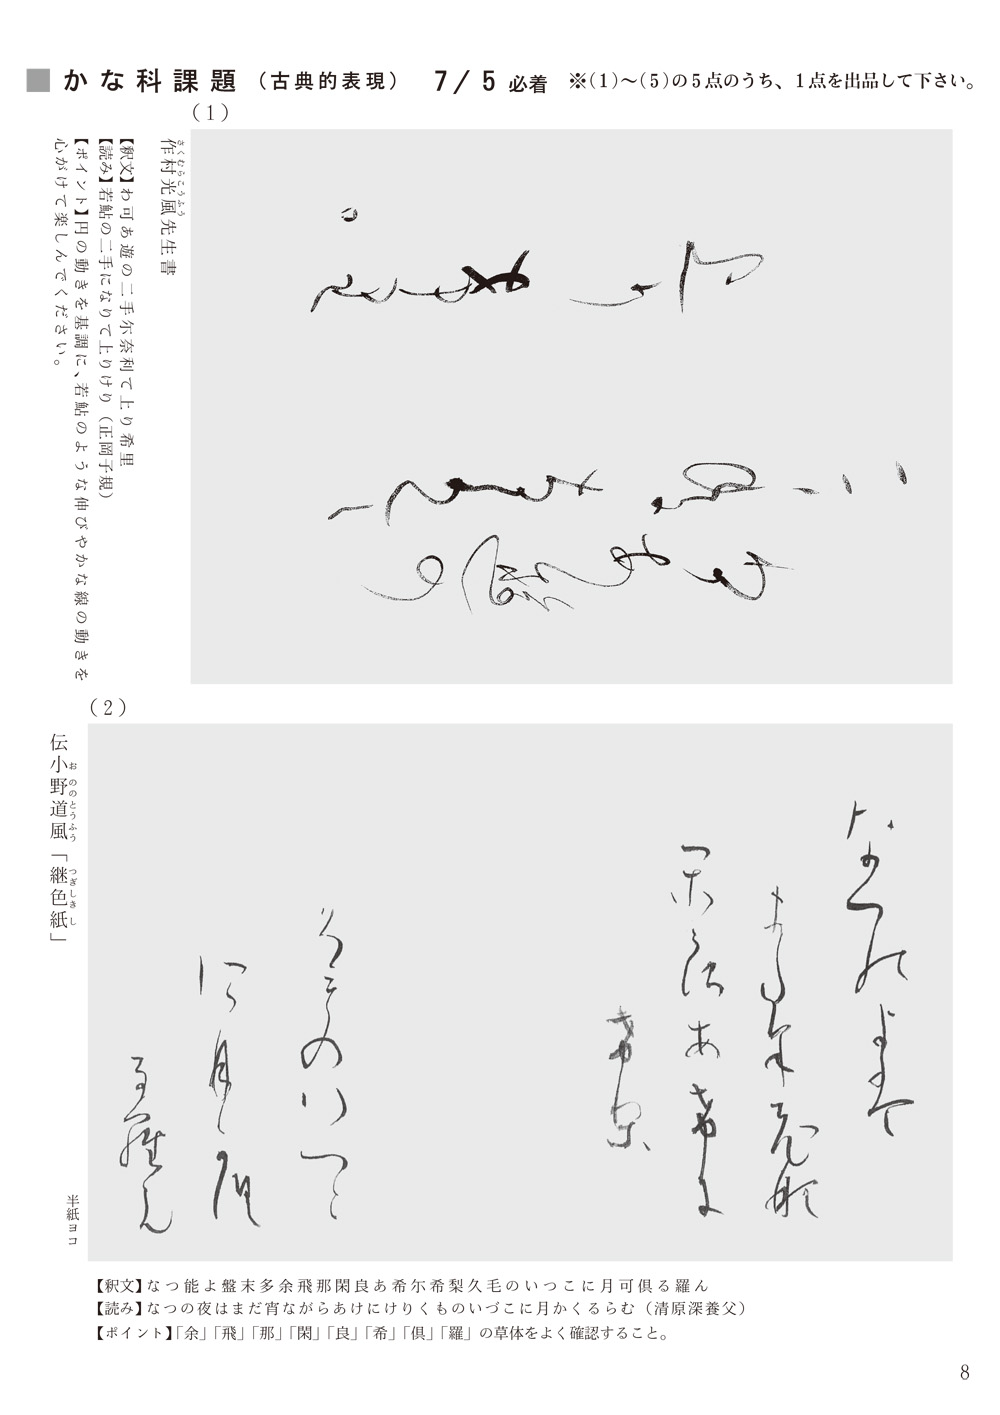 ■かな科課題（古典的表現） 7/5必着 ※（1）～（5）の5点のうち、1点を出品して下さい。
（1）
作村光風先生書
さくむらこうふう
【釈文】わ可あ遊の二手尓奈利て上り希里
【読み】若鮎の二手になりて上りけり（正岡子規）
【ポイント】円の動きを基調に、若鮎のような伸びやかな線の動きを
心がけて楽しんでください。
（2）
伝小野道風「継色紙」
おののとうふう つぎしきし
半紙ヨコ
【釈文】なつ能よ盤末多余飛那閑良あ希尓希梨久毛のいつこに月可倶る羅ん
【読み】なつの夜はまだ宵ながらあけにけりくものいづこに月かくるらむ（清原深養父）
【ポイント】「余」「飛」「那」「閑」「良」「希」「倶」「羅」の草体をよく確認すること。
8